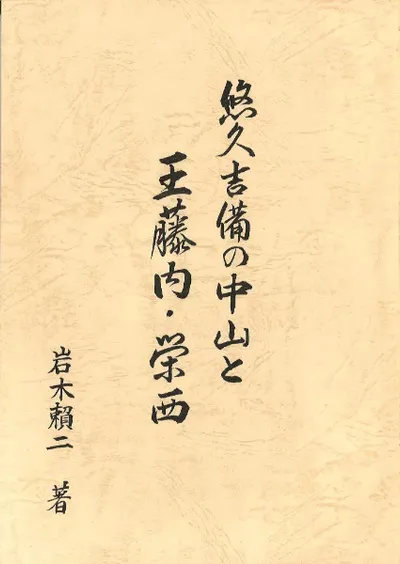 悠久吉備の中山と
王藤内・栄西
岩木頼二 著